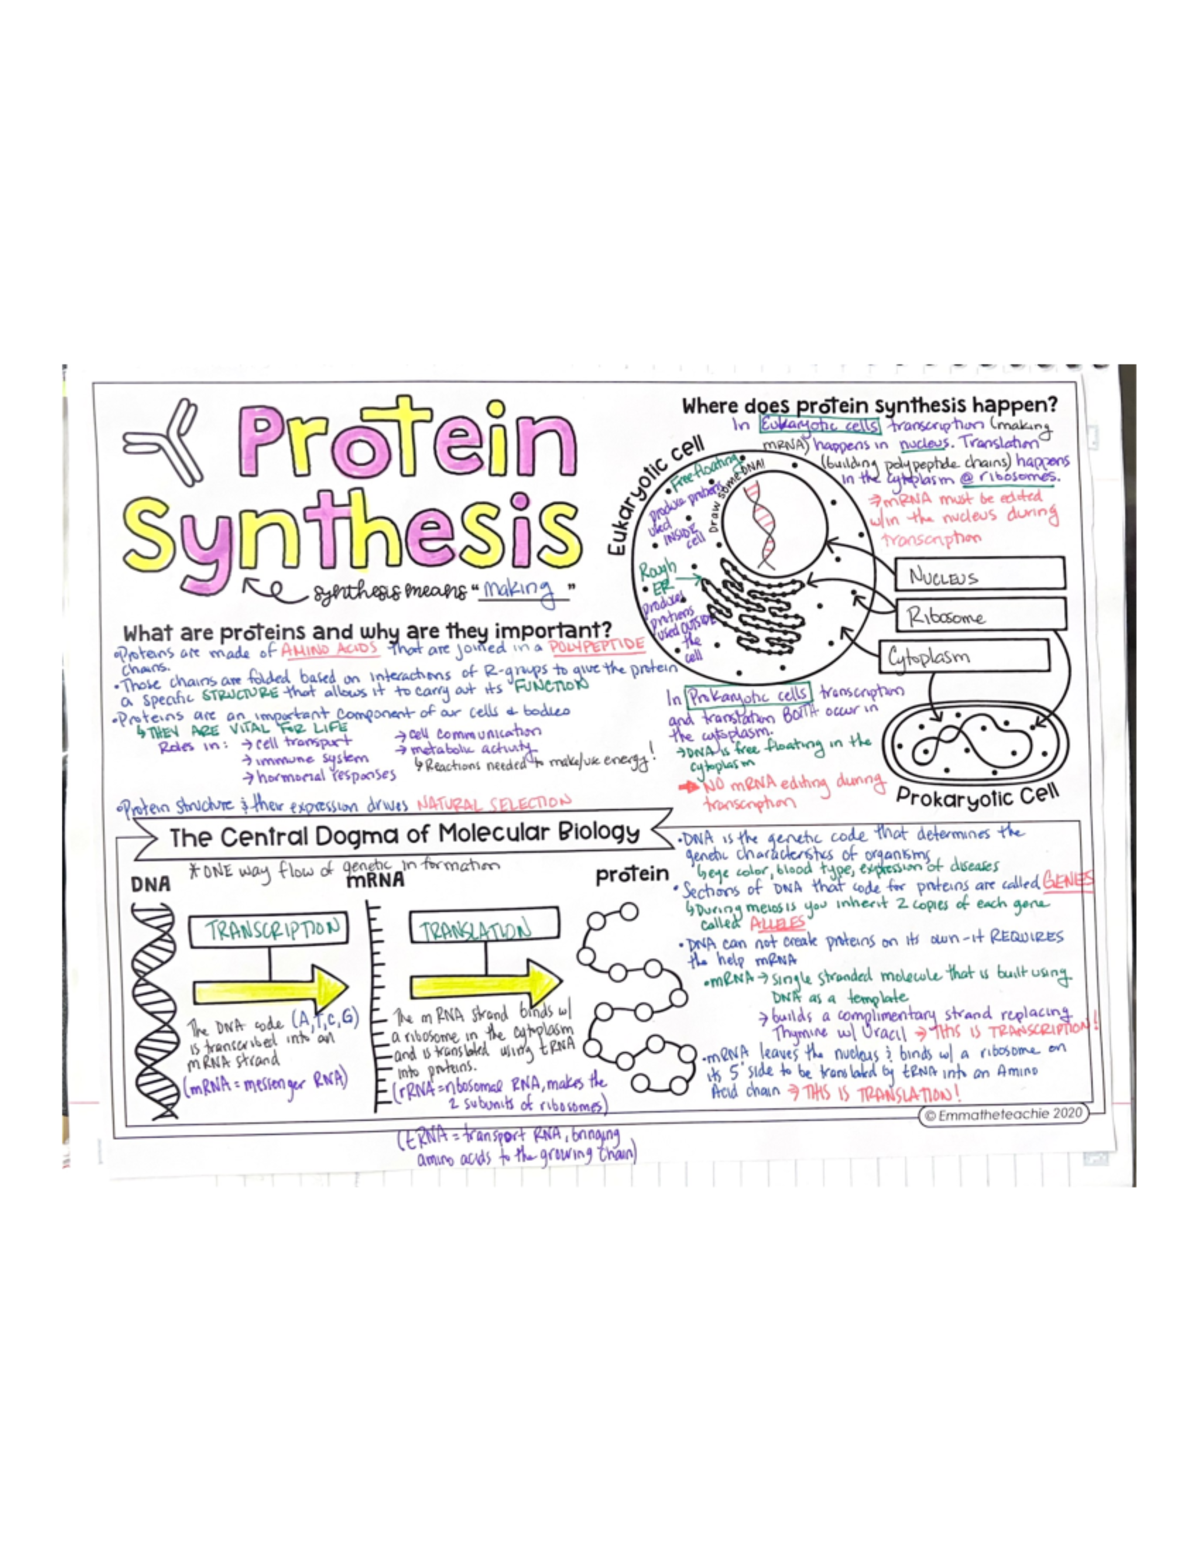 Protein
Synthesis
synthesis means "making"
What are proteins and why are they important?
•Proteins are made of AMINO ACIDS that are joined in a POLYPEPTIDE
chains.
•Those chains are folded based on interactions of R-groups to give the protein
a specific STRUCTURE that allows it to carry out its FUNCTION
•Proteins are an important component of our cells & bodies
↳THEY ARE VITAL FOR LIFE
Roles in: →cell transport
→immune system
→hormonal responses
→cell communication
→metabolic activity
↳Reactions needed to make/use energy!
•Protein structure & their expression drives NATURAL SELECTION
Where does protein synthesis happen?
In Eukaryotic cells transcription (making
mRNA) happens in nucleus. Translation
(building polypeptide chains) happens
in the cytoplasm @ ribosomes.
→mRNA must be edited
w/in the nucleus during
transcription
Eukaryotic cell
Free floating
produce proteins
used
INSIDE
cell
Draw some DNA!
Rough
ER
produces
protiens
used OUTSIDE
the
cell
NUCLEUS
Ribosome
Cytoplasm
In Prokaryotic cells transcription
and translation BOTH occur in
the cytoplasm.
→DNA is free floating in the
cytoplasm
→NO mRNA editing during
transcription
Prokaryotic Cell
The Central Dogma of Molecular Biology
*ONE way flow of genetic information
DNA
mRNA
protein
TRANSCRIPTION
TRANSLATION
The DNA code (A,T,C,G)
is transcribed into an
mRNA strand
(mRNA = messenger RNA)
The mRNA strand binds w/
a ribosome in the cytoplasm
and is translated using tRNA
into proteins.
(rRNA = ribosomal RNA, makes the
2 subunits of ribosomes)
(tRNA = transport RNA, bringing
amino acids to the growing chain)
•DNA is the genetic code that determines the
genetic characteristics of organisms
↳eye color, blood type, expression of diseases
•Sections of DNA that code for proteins are called GENES
↳During meiosis you inherit 2 copies of each gene
called ALLELES
•DNA can not create proteins on its own-it REQUIRES
the help mRNA
•mRNA→single stranded molecule that is built using
DNA as a template
→builds a complimentary strand replacing
Thymine w/ Uracil →THIS IS TRANSCRIPTION!
•mRNA leaves the nucleus & binds w/ a ribosome on
its 5' side to be translated by tRNA into an Amino
Acid chain →THIS IS TRANSLATION!
© Emmatheteachie 2020